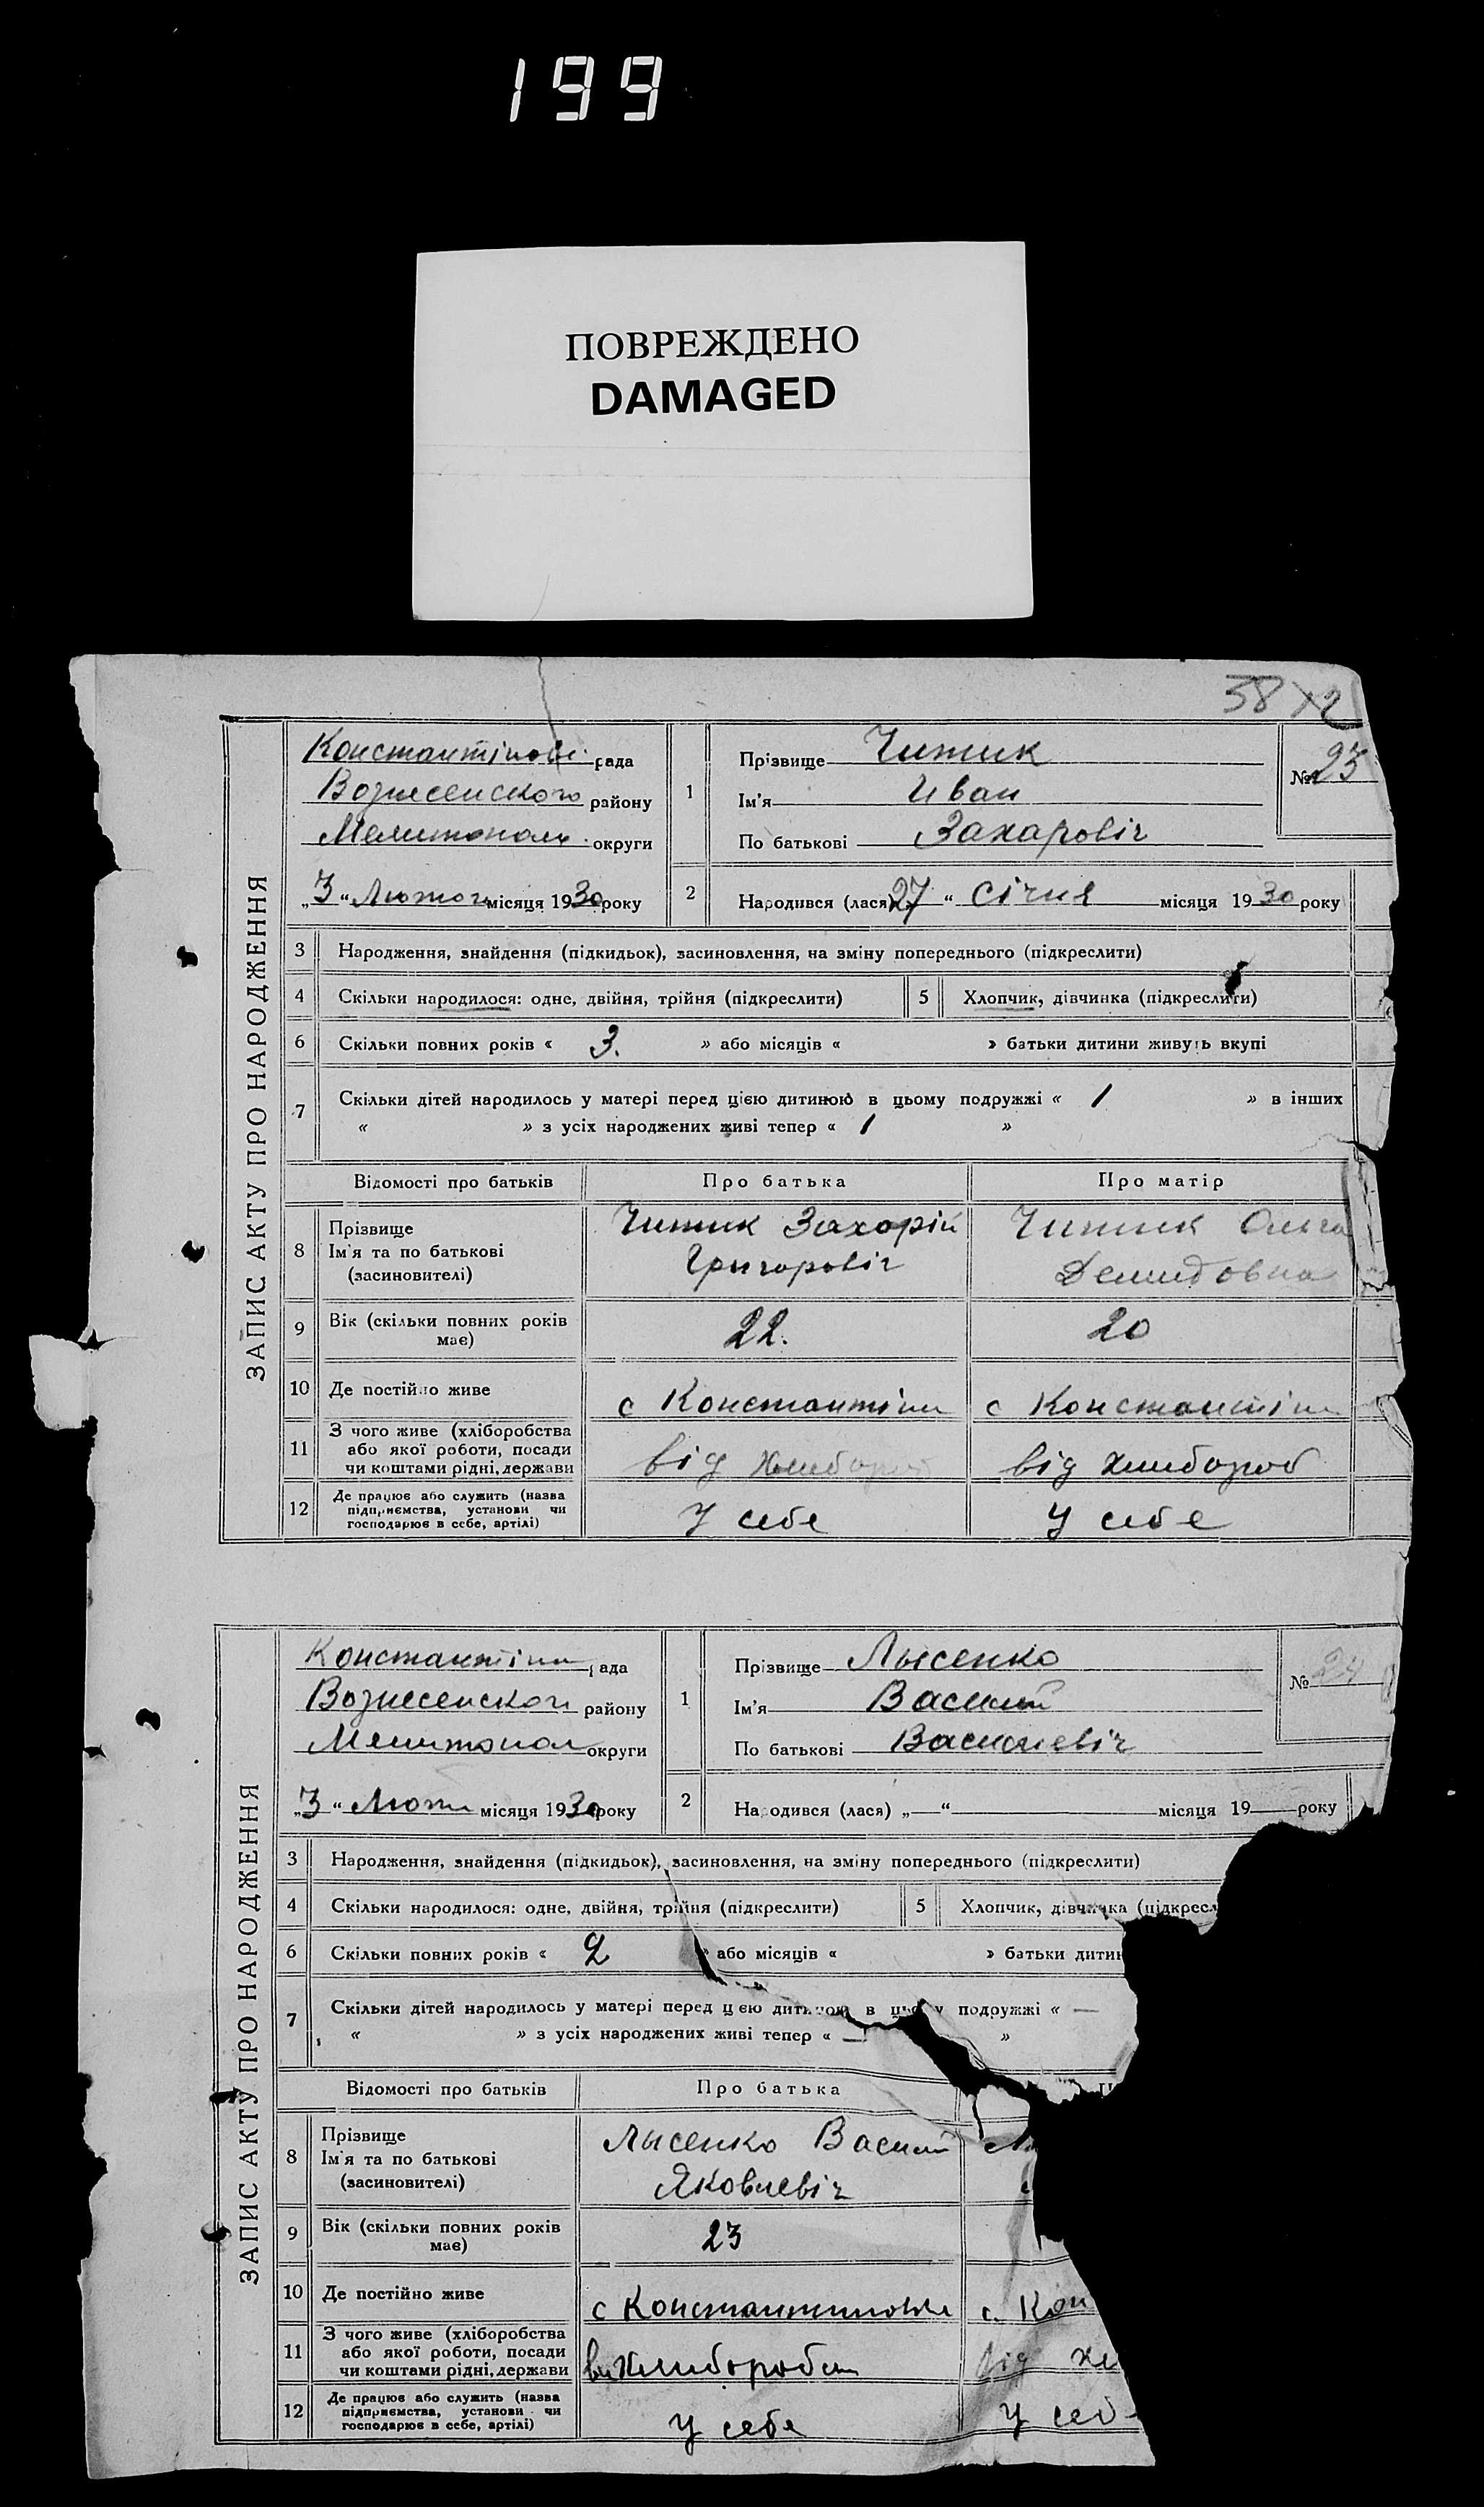 199
ПОВРЕЖДЕНО
DAMAGED
58 х2
ЗАПИС АКТУ ПРО НАРОДЖЕННЯ
Константінов. рада
Вознесенского району
Мелитополь. округи
„3“ Лютого місяця 1930 року
1
Прізвище Чижик
Ім'я Иван
По батькові Захаровіч
№ 23
2
Народився (лася) „27“ Січня місяця 1930 року
3 Народження, знайдення (підкидьок), засиновлення, на зміну попереднього (підкреслити)
4 Скільки народилося: одне, двійня, трійня (підкреслити) 5 Хлопчик, дівчинка (підкреслити)
6 Скільки повних років « 3. » або місяців « » батьки дитини живуть вкупі
7 Скільки дітей народилось у матері перед цією дитиною в цьому подружжі « 1 » в інших
« » з усіх народжених живі тепер « 1 »
Відомості про батьків Про батька Про матір
8 Прізвище
Ім'я та по батькові
(засиновителі)
Чижик Захорій
Григоровіч
Чижик Ольга
Демидовна
9 Вік (скільки повних років
має)
22.
20
10 Де постійно живе с Константіни с Константіни
11 З чого живе (хліборобства
або якої роботи, посади
чи коштами рідні, держави
від
від хлибороб
12 Де працює або служить (назва
підприємства, установи чи
господарює в себе, артілі)
У себе
У себе
ЗАПИС АКТУ ПРО НАРОДЖЕННЯ
Константіни рада
Вознесенског району
Мелитопол округи
„3“ Люти місяця 1930 року
1
Прізвище Лысенко
Ім'я Василий
По батькові Васильевіч
№ 24
2
Народився (лася) „—“ місяця 19— року
3 Народження, знайдення (підкидьок), засиновлення, на зміну попереднього (підкреслити)
4 Скільки народилося: одне, двійня, трійня (підкреслити) 5 Хлопчик, дівчинка (підкресл
6 Скільки повних років « 2 » або місяців « » батьки дитин
7 Скільки дітей народилось у матері перед цією дитиною в цьому подружжі « —
« » з усіх народжених живі тепер « — »
Відомості про батьків Про батька
8 Прізвище
Ім'я та по батькові
(засиновителі)
Лысенко Васили
Яковлевіч
9 Вік (скільки повних років
має)
23
10 Де постійно живе с Константиновки с. Кон
11 З чого живе (хліборобства
або якої роботи, посади
чи коштами рідні, держави
від хл
12 Де працює або служить (назва
підприємства, установи чи
господарює в себе, артілі)
У себе
У себ